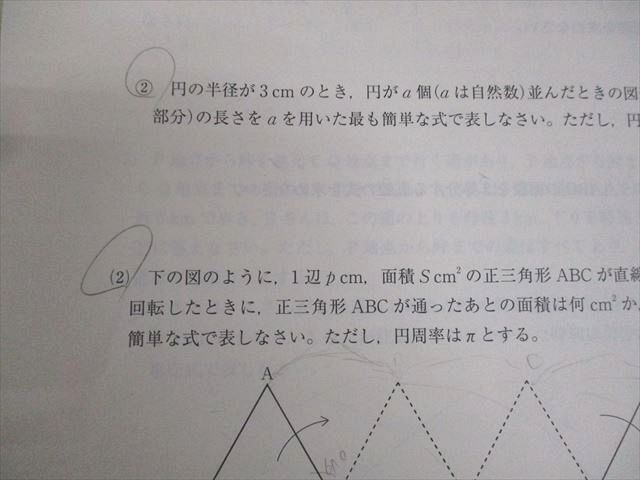 ② 円の半径が3cmのとき，円がa個(aは自然数)並んだときの図
部分)の長さをaを用いた最も簡単な式で表しなさい。ただし，円
(2) 下の図のように，1辺pcm，面積Scm²の正三角形ABCが直線
回転したときに，正三角形ABCが通ったあとの面積は何cm²か。
簡単な式で表しなさい。ただし，円周率はπとする。
A
C